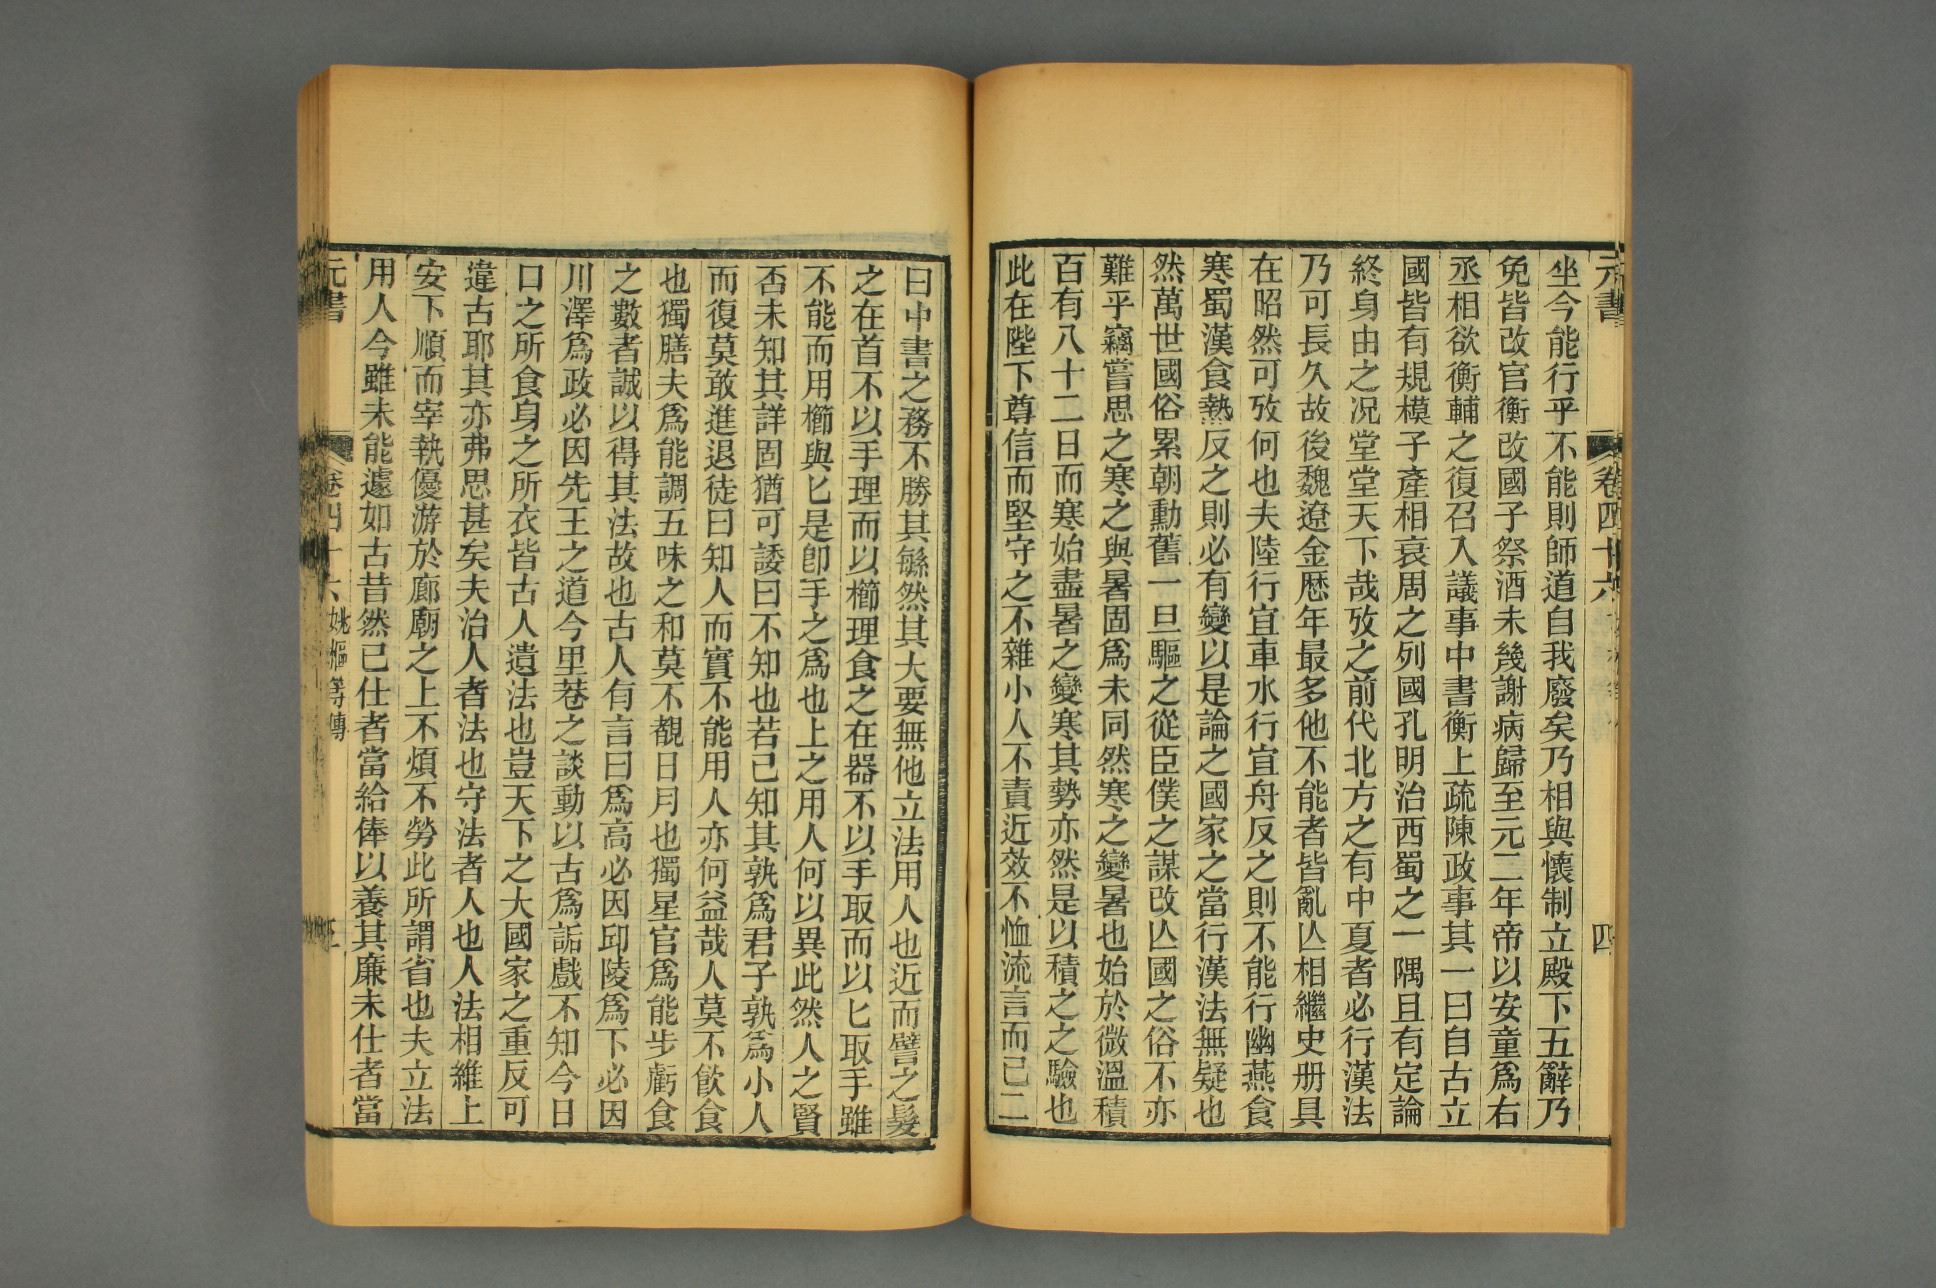 元書
卷四十六
四
坐今能行乎不能則師道自我廢矣乃相與懷制立殿下五辭乃
免皆改官衡改國子祭酒未幾謝病歸至元二年帝以安童爲右
丞相欲衡輔之復召入議事中書衡上疏陳政事其一曰自古立
國皆有規模子產相衰周之列國孔明治西蜀之一隅且有定論
終身由之況堂堂天下哉攷之前代北方之有中夏者必行漢法
乃可長久故後魏遼金歷年最多他不能者皆亂亾相繼史册具
在昭然可攷何也夫陸行宜車水行宜舟反之則不能行幽燕食
寒蜀漢食熱反之則必有變以是論之國家之當行漢法無疑也
然萬世國俗累朝勳舊一旦驅之從臣僕之謀改亾國之俗不亦
難乎竊嘗思之寒之與暑固爲未同然寒之變暑也始於微溫積
百有八十二日而寒始盡暑之變寒其勢亦然是以積之之驗也
此在陛下尊信而堅守之不雜小人不責近效不恤流言而已二
曰中書之務不勝其緐然其大要無他立法用人也近而譬之髮
之在首不以手理而以櫛理食之在器不以手取而以匕取手雖
不能而用櫛與匕是卽手之爲也上之用人何以異此然人之賢
否未知其詳固猶可諉曰不知也若已知其孰爲君子孰爲小人
而復莫敢進退徒曰知人而實不能用人亦何益哉人莫不飮食
也獨膳夫爲能調五味之和莫不覩日月也獨星官爲能步虧食
之數者誠以得其法故也古人有言曰爲高必因邱陵爲下必因
川澤爲政必因先王之道今里巷之談動以古爲詬戲不知今日
口之所食身之所衣皆古人遺法也豈天下之大國家之重反可
違古耶其亦弗思甚矣夫治人者法也守法者人也人法相維上
安下順而宰執優游於廊廟之上不煩不勞此所謂省也夫立法
用人今雖未能遽如古昔然已仕者當給俸以養其廉未仕者當
元書
卷四十六 姚樞等傳